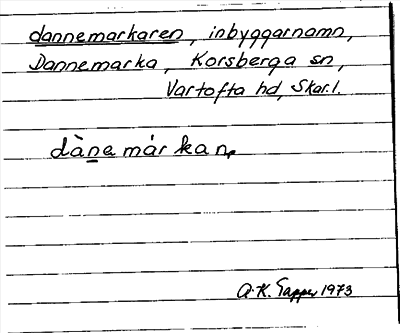 dannemarkaren, inbyggarnamn,
Dannemarka, Korsberga sn,
Vartofta hd, Skar.l.
dànemárkan,
A.K. Tapper 1973